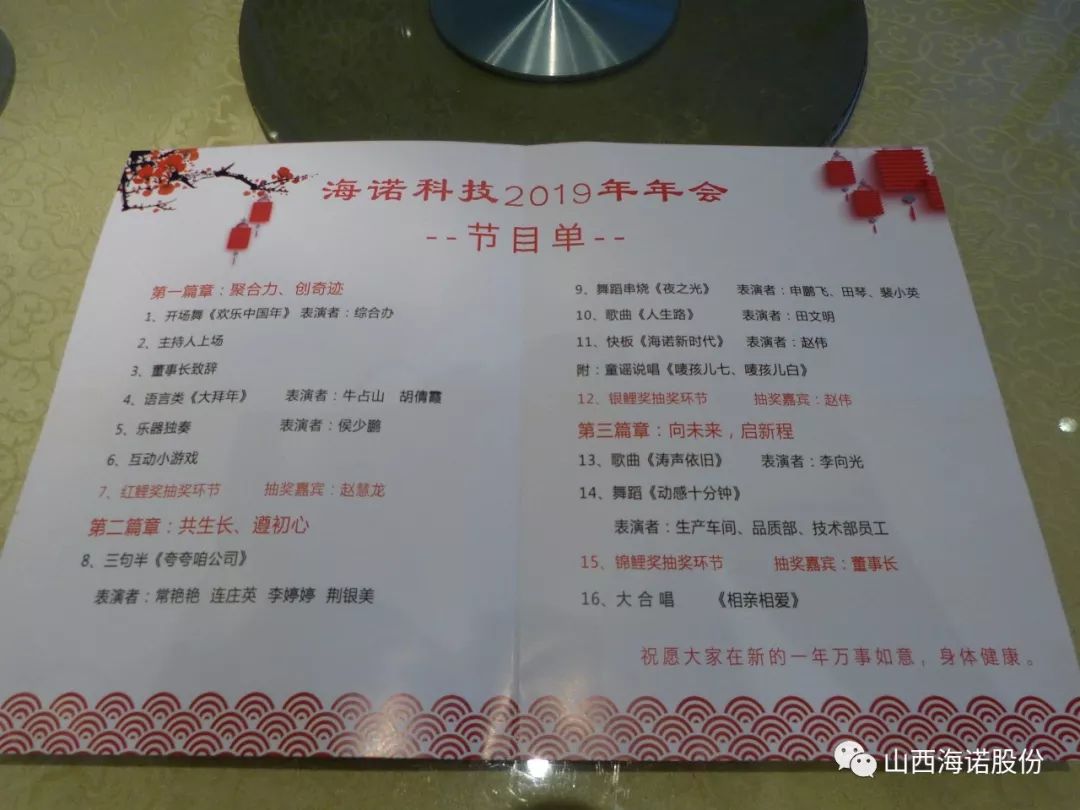 海诺科技2019年年会
--节目单--
第一篇章：聚合力、创奇迹
1、开场舞《欢乐中国年》 表演者：综合办
2、主持人上场
3、董事长致辞
4、语言类《大拜年》 表演者：牛占山 胡倩霞
5、乐器独奏 表演者：侯少鹏
6、互动小游戏
7、红鲤奖抽奖环节 抽奖嘉宾：赵慧龙
第二篇章：共生长、遵初心
8、三句半《夸夸咱公司》
表演者：常艳艳 连庄英 李婷婷 荆银美
9、舞蹈串烧《夜之光》 表演者：申鹏飞、田琴、裴小英
10、歌曲《人生路》 表演者：田文明
11、快板《海诺新时代》 表演者：赵伟
附：童谣说唱《唛孩儿七、唛孩儿白》
12、银鲤奖抽奖环节 抽奖嘉宾：赵伟
第三篇章：向未来，启新程
13、歌曲《涛声依旧》 表演者：李向光
14、舞蹈《动感十分钟》
表演者：生产车间、品质部、技术部员工
15、锦鲤奖抽奖环节 抽奖嘉宾：董事长
16、大 合 唱 《相亲相爱》
祝愿大家在新的一年万事如意，身体健康。
山西海诺股份